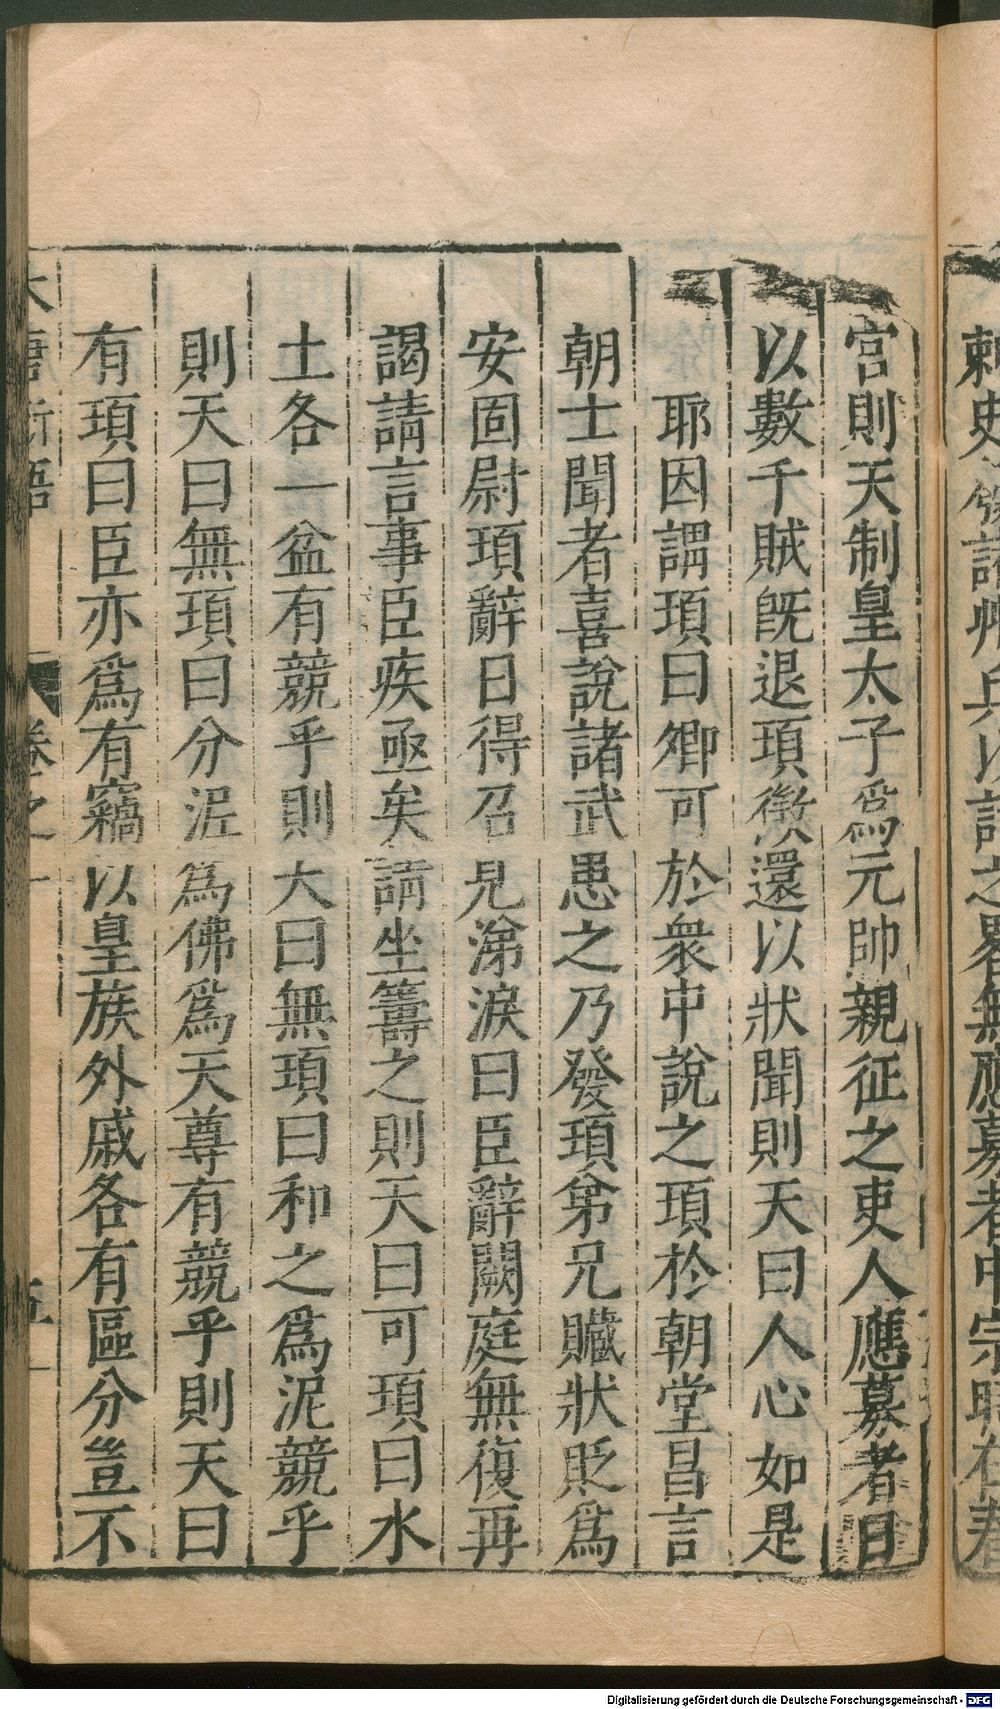 刺史 發諸州兵以討之畧無應募者中宗時在春
宮則天制皇太子爲元帥親征之吏人應募者日
以數千賊旣退頊徵還以狀聞則天曰人心如是
耶因謂頊曰卿可於衆中說之頊於朝堂昌言
朝士聞者喜說諸武患之乃發頊弟兄贓狀貶爲
安固尉頊辭日得召見涕淚曰臣辭闕庭無復再
謁請言事臣疾亟矣請坐籌之則天曰可頊曰水
土各一盆有競乎則大曰無頊曰和之爲泥競乎
則天曰無頊曰分泥爲佛爲天尊有競乎則天曰
有頊曰臣亦爲有竊以皇族外戚各有區分豈不
大唐新語 卷之一 五
Digitalisierung gefördert durch die Deutsche Forschungsgemeinschaft - DFG